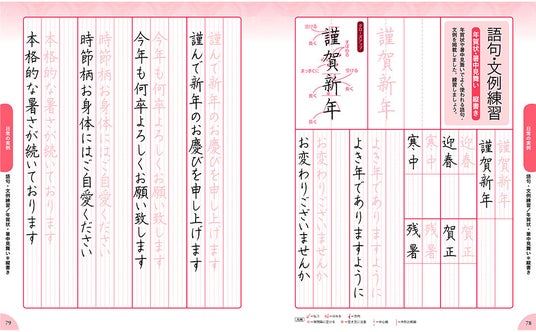 語句・文例練習
年賀状・暑中見舞い 縦書き
年賀状や暑中見舞いでよく使われる語句・
文例を掲載しました。練習しましょう。
クローズアップ
謹賀新年
謹賀新年
謹賀新年
謹賀新年
迎春
迎春
賀正
賀正
寒中
寒中
残暑
残暑
よき年でありますように
よき年でありますように
お変わりございませんか
お変わりございませんか
日常の実例
語句・文例練習/年賀状・暑中見舞い/縦書き
78
謹んで新年のお慶びを申し上げます
謹んで新年のお慶びを申し上げます
今年も何卒よろしくお願い致します
今年も何卒よろしくお願い致します
時節柄お身体にはご自愛ください
時節柄お身体にはご自愛ください
本格的な暑さが続いております
本格的な暑さが続いております
日常の実例
語句・文例練習/年賀状・暑中見舞い/縦書き
79